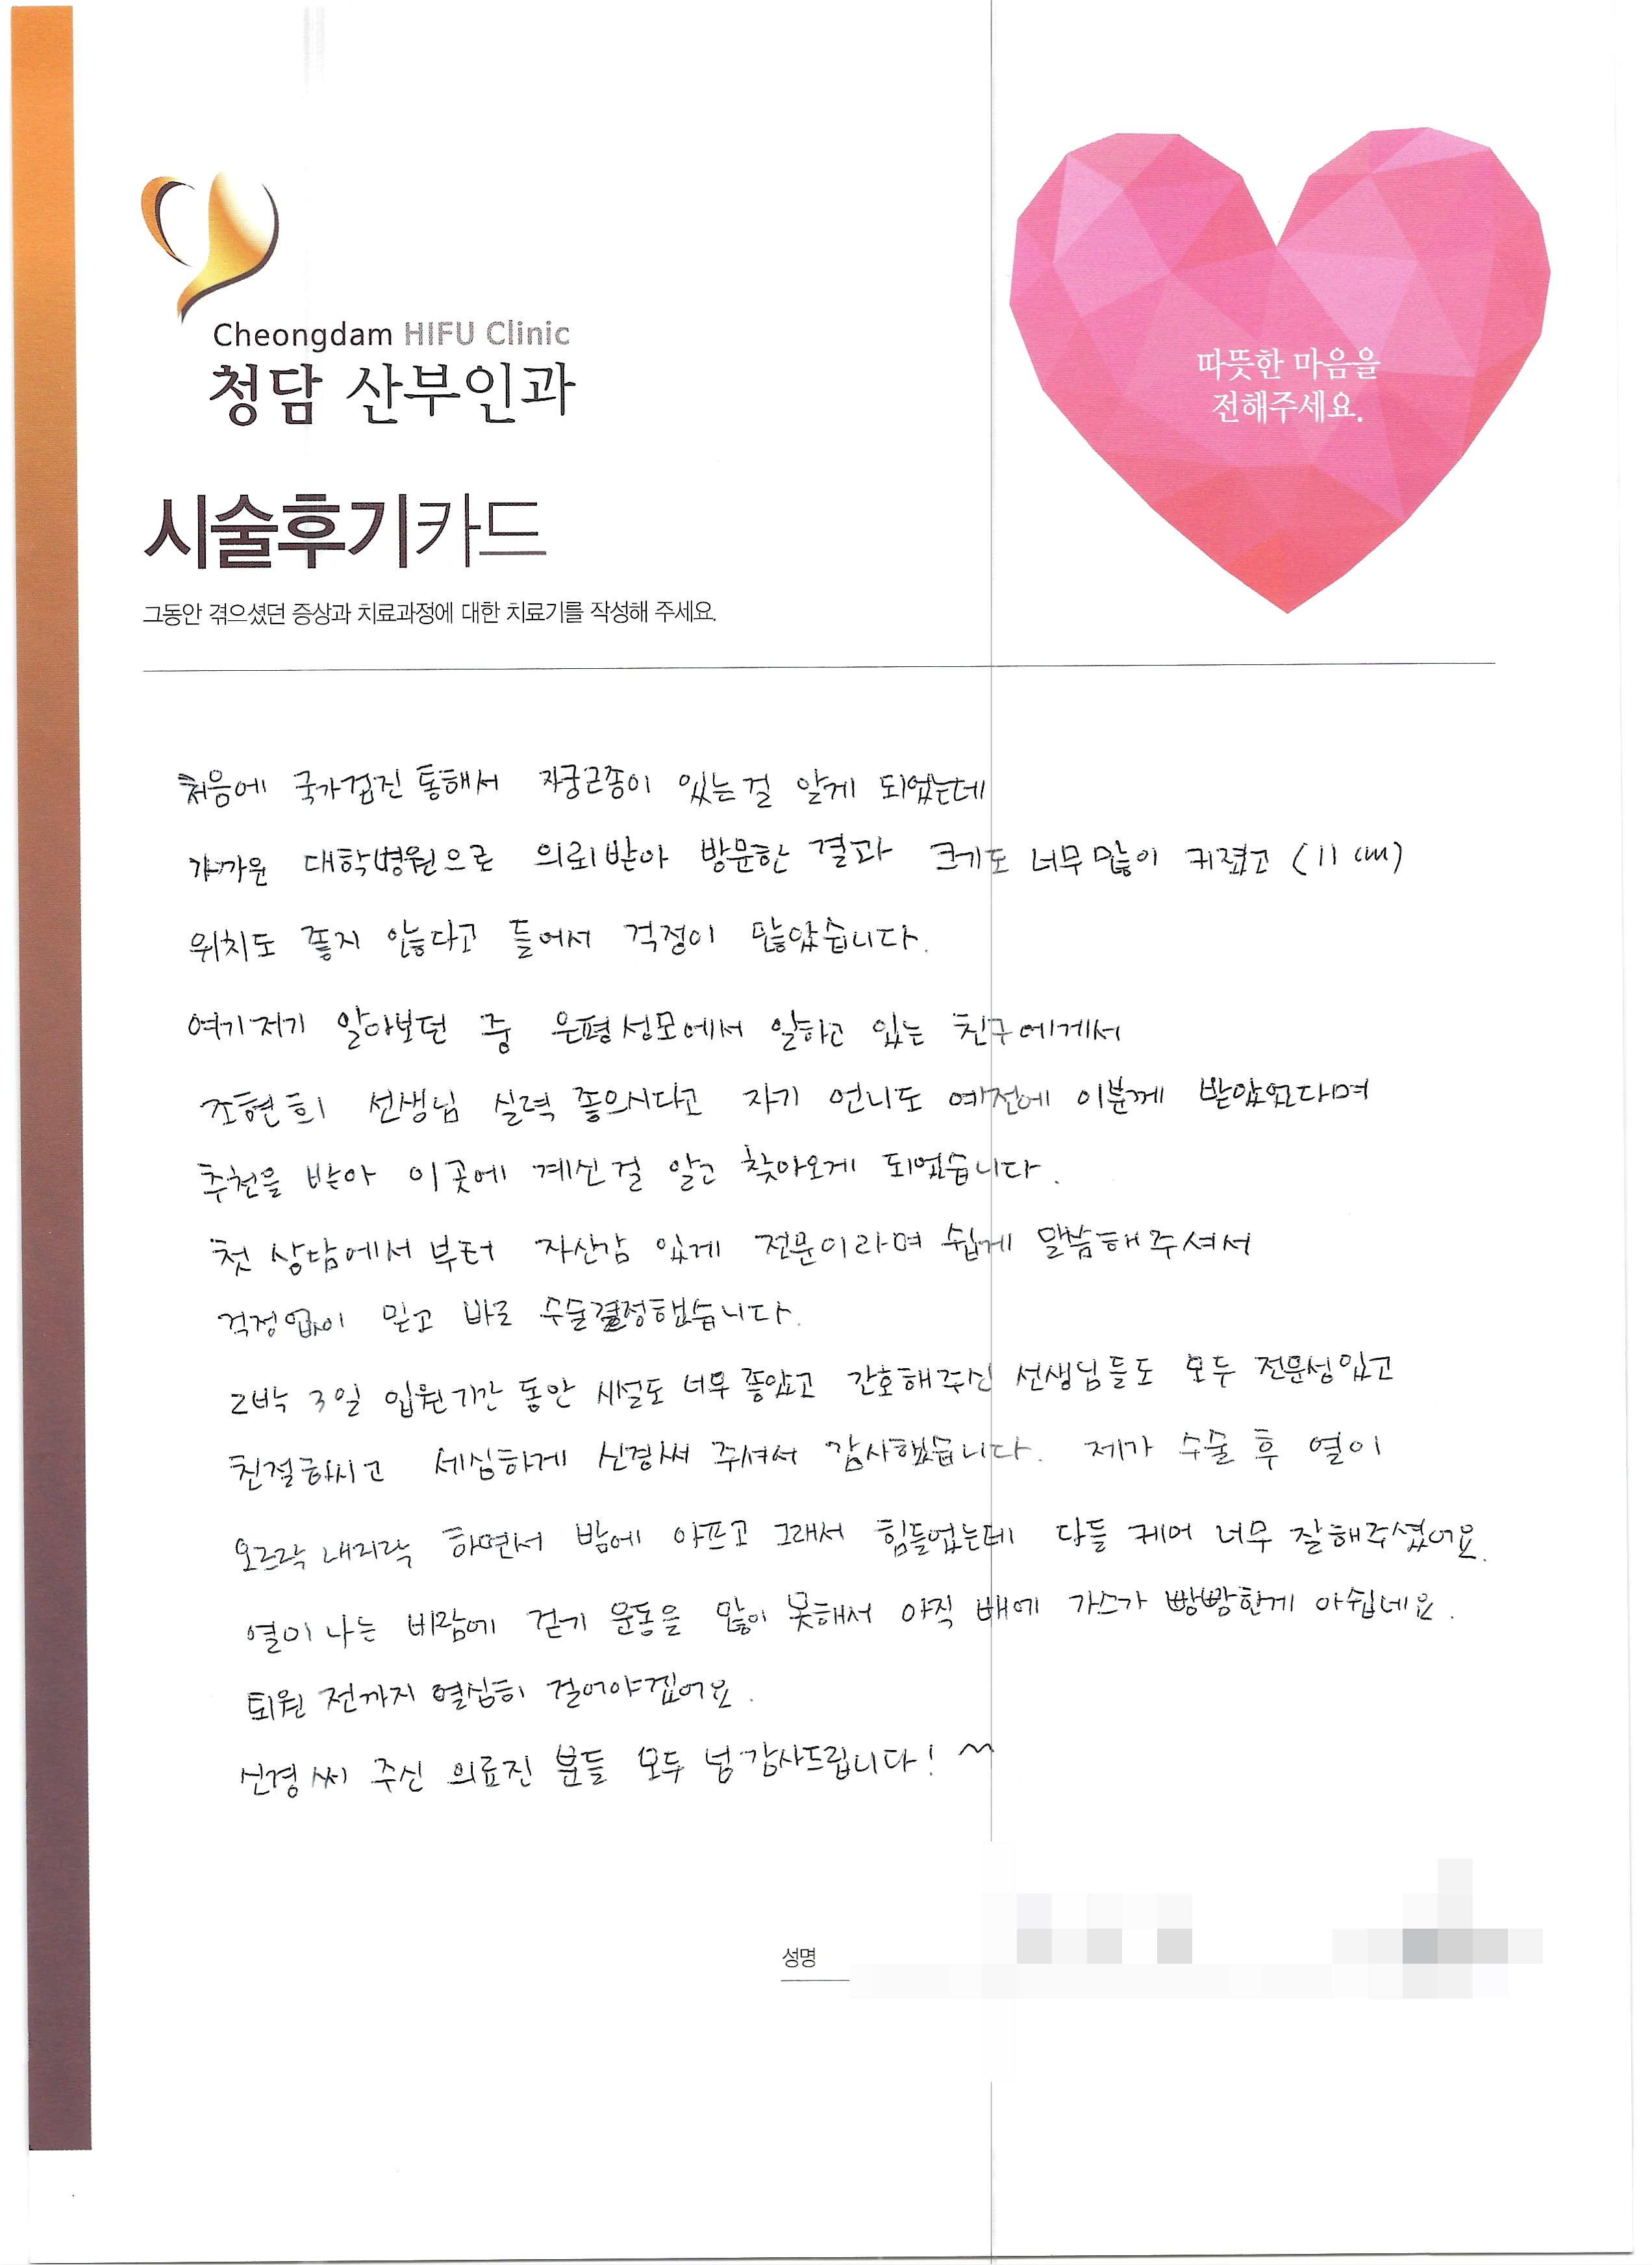 Cheongdam HIFU Clinic
청담 산부인과
따뜻한 마음을
전해주세요.
시술후기카드
그동안 겪으셨던 증상과 치료과정에 대한 치료기를 작성해 주세요.
처음에 국가검진 통해서 자궁근종이 있는걸 알게 되었는데
가까운 대학병원으로 의뢰받아 방문한 결과 크기도 너무 많이 커졌고 (11cm)
위치도 좋지 않다고 들어서 걱정이 많았습니다.
여기저기 알아보던 중 은평성모에서 일하고 있는 친구에게서
조현희 선생님 실력 좋으시다고 자기 언니도 예전에 이분께 받았었다며
추천을 받아 이곳에 계신걸 알고 찾아오게 되었습니다.
첫 상담에서부터 자신감 있게 전문이라며 쉽게 말씀해주셔서
걱정없이 믿고 바로 수술결정했습니다.
2박 3일 입원기간 동안 시설도 너무 좋았고 간호해주신 선생님들도 모두 전문성있고
친절하시고 세심하게 신경써 주셔서 감사했습니다. 제가 수술 후 열이
오르락 내리락 하면서 밤에 아프고 그래서 힘들었는데 다들 케어 너무 잘해주셨어요.
열이 나는 바람에 걷기 운동을 많이 못해서 아직 배에 가스가 빵빵한게 아쉽네요.
퇴원 전까지 열심히 걸어야겠어요.
신경써 주신 의료진 분들 모두 넘 감사드립니다! ~
성명